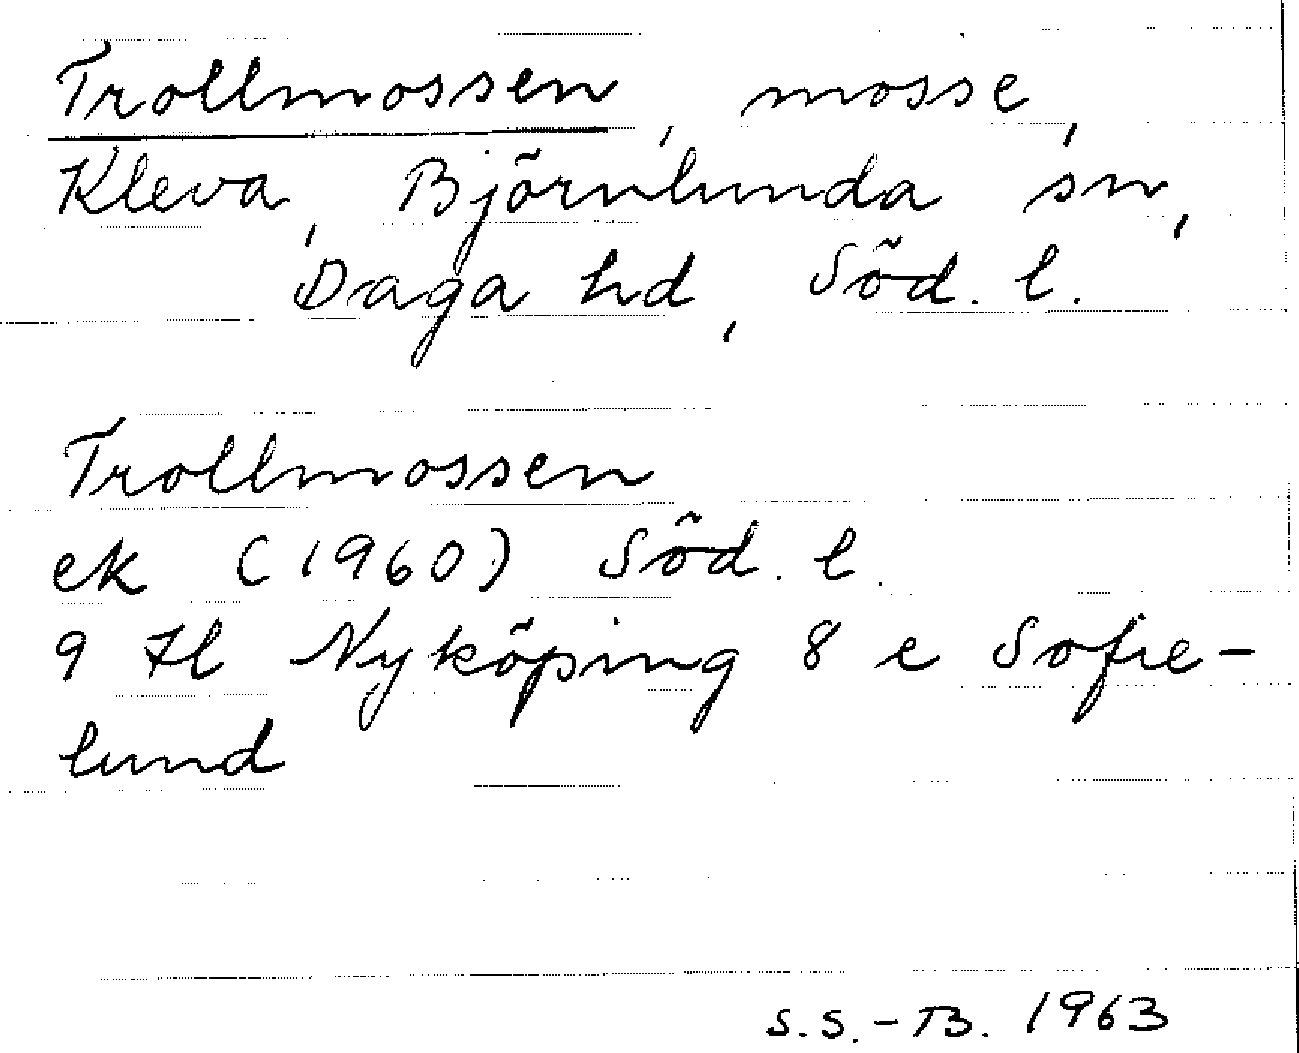 Trollmossen, mosse,
Kleva, Björnlunda sn,
Daga hd, Söd. l.
Trollmossen
ek (1960) Söd. l.
9 Hl Nyköping 8 e Sofie-
lund
S.S.-B. 1963